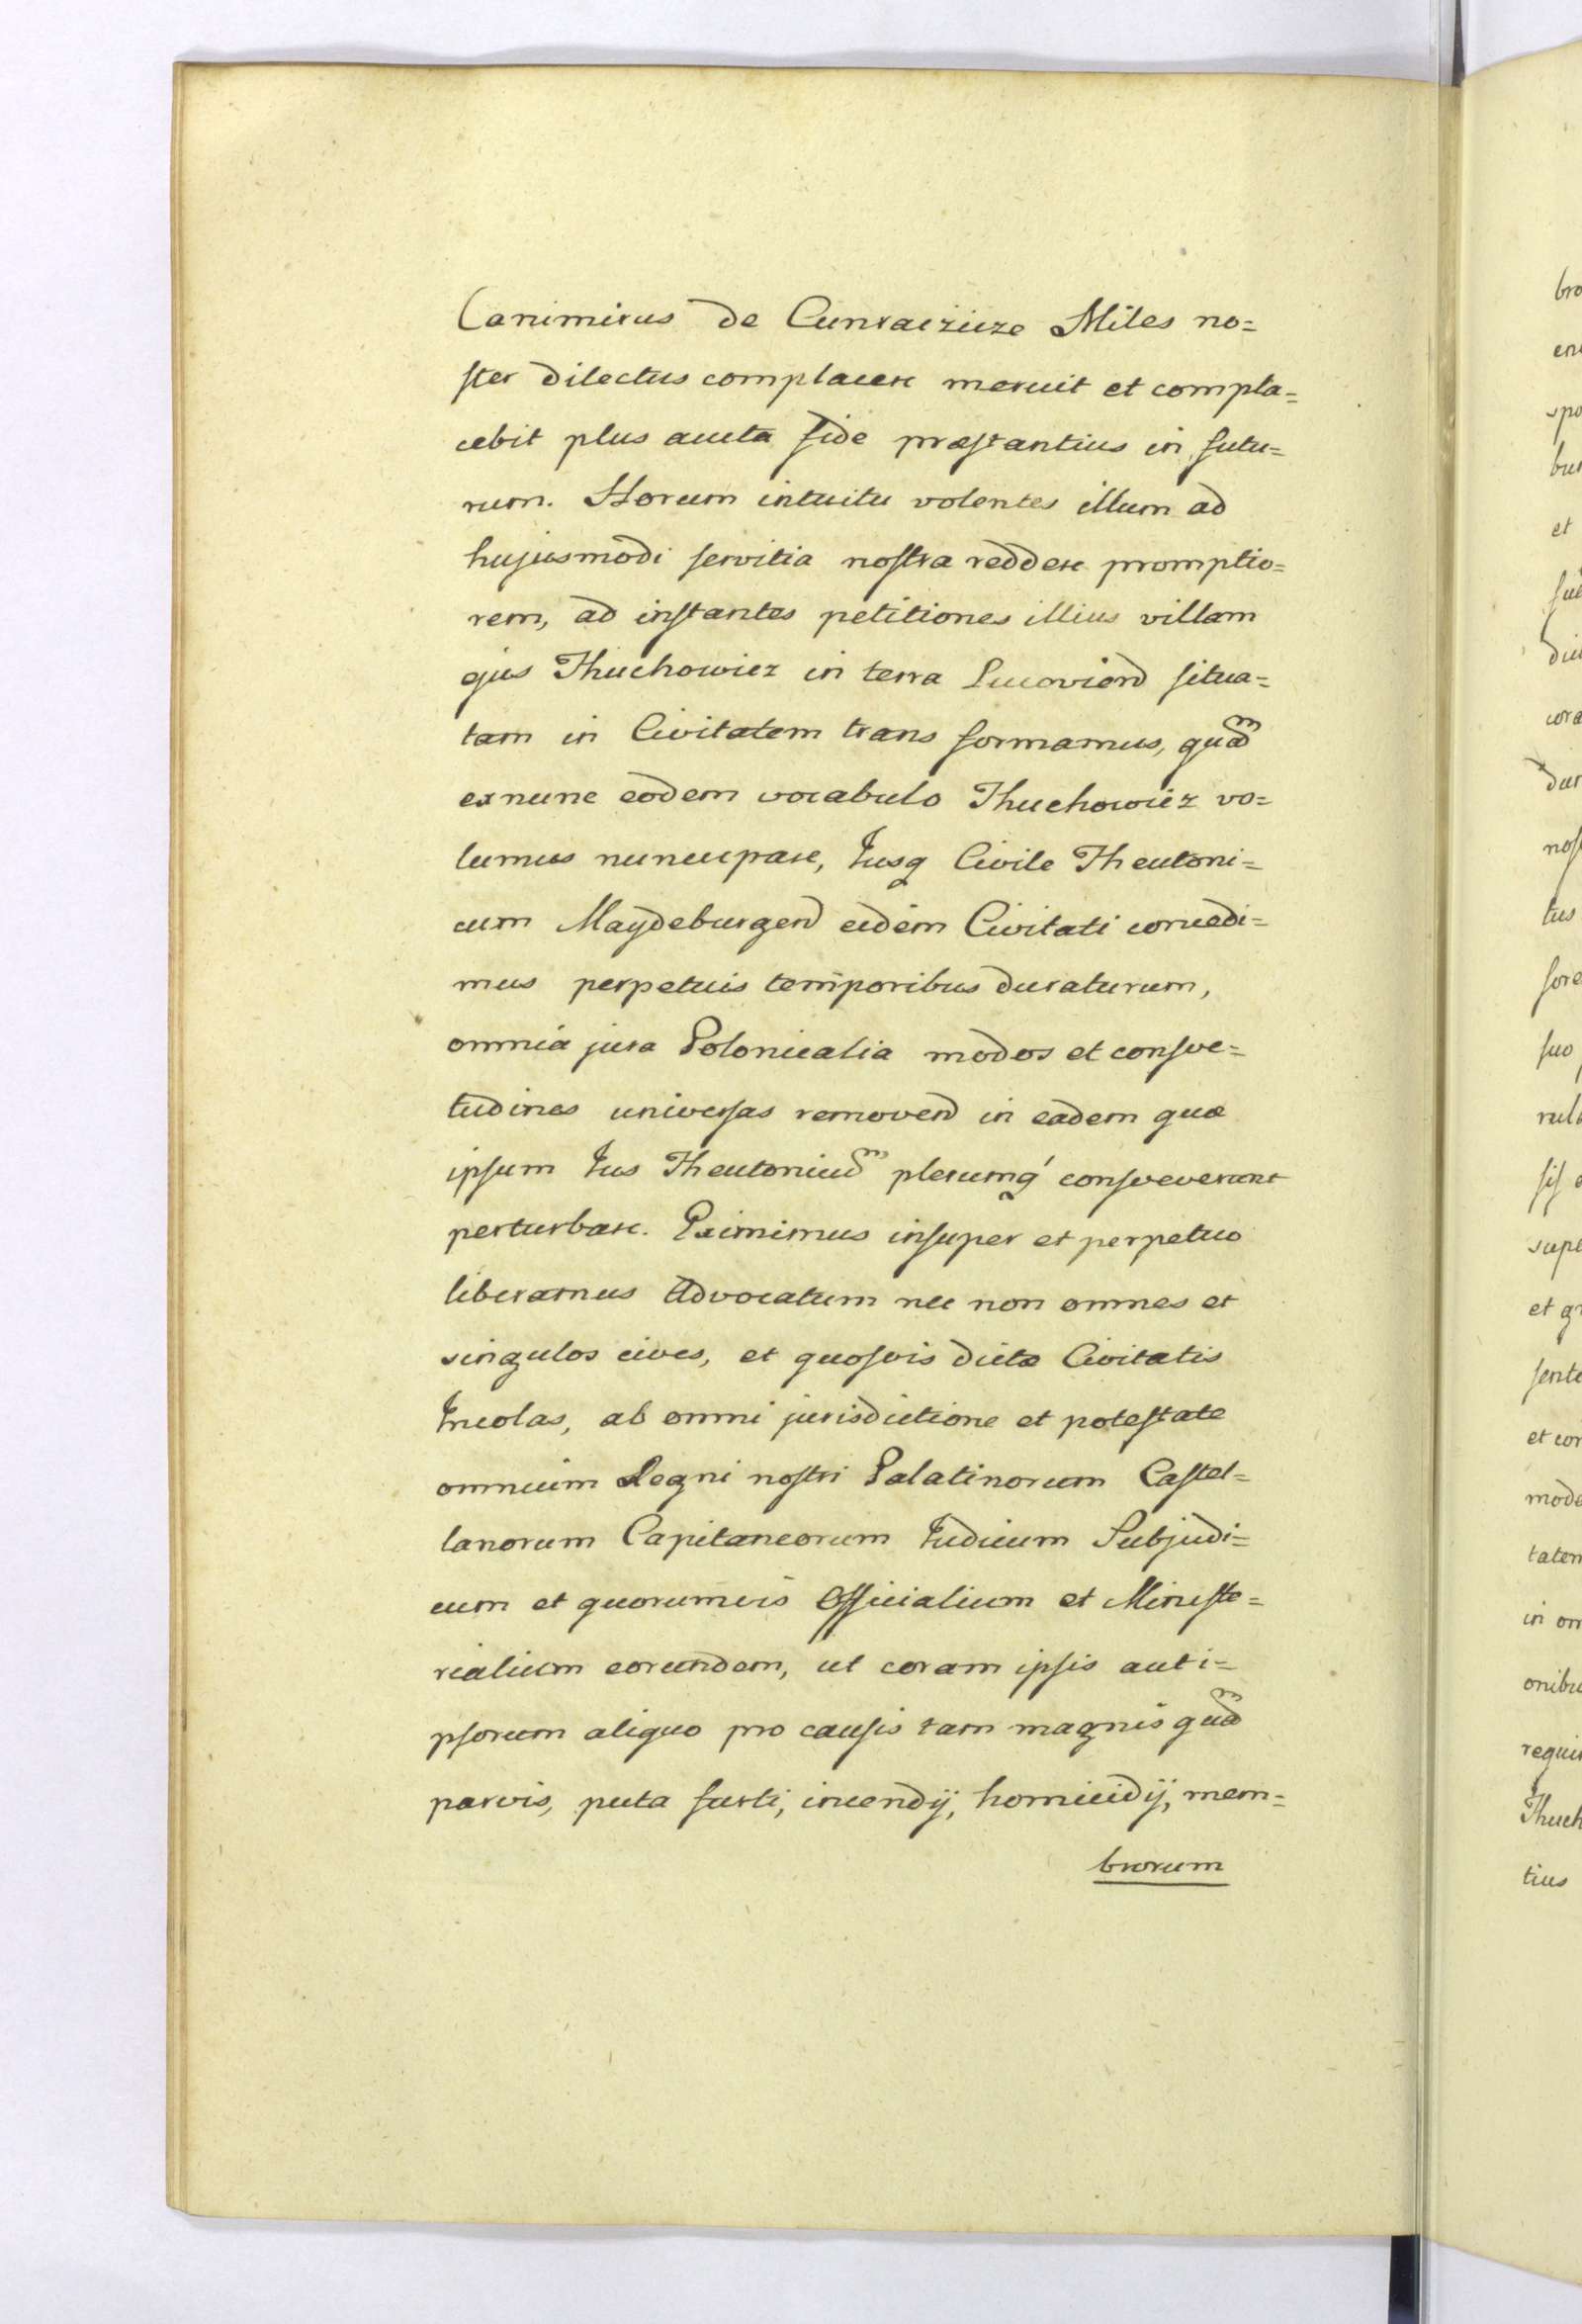 Canimirus de Cunraezicze Miles no=
ster dilectus complacere meruit et compla=
cebit plus aucta fide præstantius in futu=
rum. Horum intuitu volentes illum ad
hujusmodi servitia nostra reddere promptio=
rem, ad instantes petitiones illius villam
ejus Thuchowicz in terra Lucoviend situa=
tam in Civitatem trans formamus, quam
exnunc eodem vocabulo Thuchowicz vo=
lumus nuncupare, Jusq Civile Theutoni=
cum Maydeburgend eidem Civitati concedi=
mus perpetuis temporibus duraturum,
omnia jura Polonicalia modos et consve=
tudines universas removend in eadem quæ
ipsum Jus Theutonicum plerumq consveverunt
perturbare. Eximimus insuper et perpetuo
liberamus Advocatum nec non omnes et
singulos cives, et quosvis dictæ Civitatis
Incolas, ab omni jurisdictione et potestate
omnium Regni nostri Palatinorum Castel=
lanorum Capitaneorum Judicum Subjudi=
cum et quorumvis Officialium et Ministe=
rialium eorundem, ut coram ipsis aut i=
psorum aliquo pro causis tam magnis quam
parvis, puta furti, incendij, homicidij, mem=
brorum
bro
et
tus
suo
et cor
tatem
in om
onibu
Thuch
tius